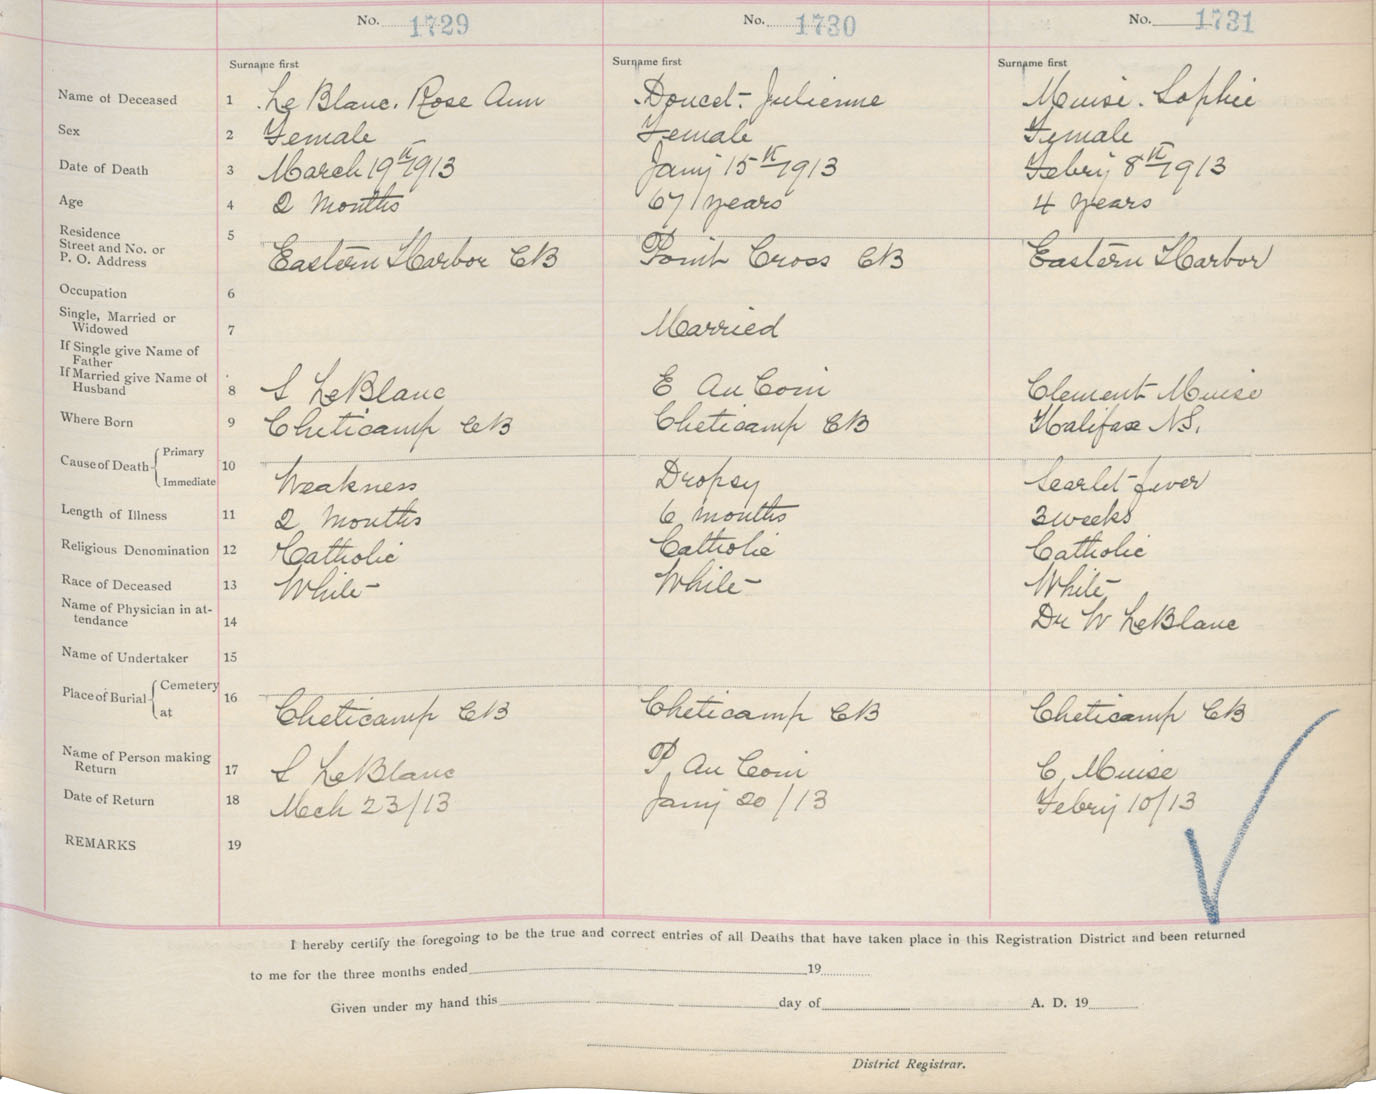 No. 1729 No. 1730 No. 1731
Surname first Surname first Surname first
Name of Deceased 1 Le Blanc. Rose Ann Doucet - Julienne Muise. Sophie
Sex 2 Female Female Female
Date of Death 3 March 19th 1913 Jany 15th 1913 Febry 8th 1913
Age 4 2 Months 67 years 4 years
Residence
Street and No. or
P. O. Address 5 Eastern Harbor CB Point Cross CB Eastern Harbor
Occupation 6
Single, Married or
Widowed 7 Married
If Single give Name of
Father
If Married give Name of
Husband 8 S LeBlanc E AuCoin Clement Muise
Where Born 9 Cheticamp CB Cheticamp CB Halifax N.S.
Cause of Death Primary
Immediate 10 Weakness Dropsy Scarlet-fever
Length of Illness 11 2 Months 6 months weeks
Religious Denomination 12 Catholic Catholic Catholic
Race of Deceased 13 White White White
Name of Physician in at-
tendance 14 Dr W LeBlanc
Name of Undertaker 15
Place of Burial Cemetery
at 16 Cheticamp CB Cheticamp CB Cheticamp CB
Name of Person making
Return 17 S LeBlanc P. AuCoin C. Muise
Date of Return 18 Mch 23/13 Jany 20/13 Febry 10/13
REMARKS 19
I hereby certify the foregoing to be the true and correct entries of all Deaths that have taken place in this Registration District and been returned
to me for the three months ended 19
Given under my hand this day of A. D. 19
District Registrar.